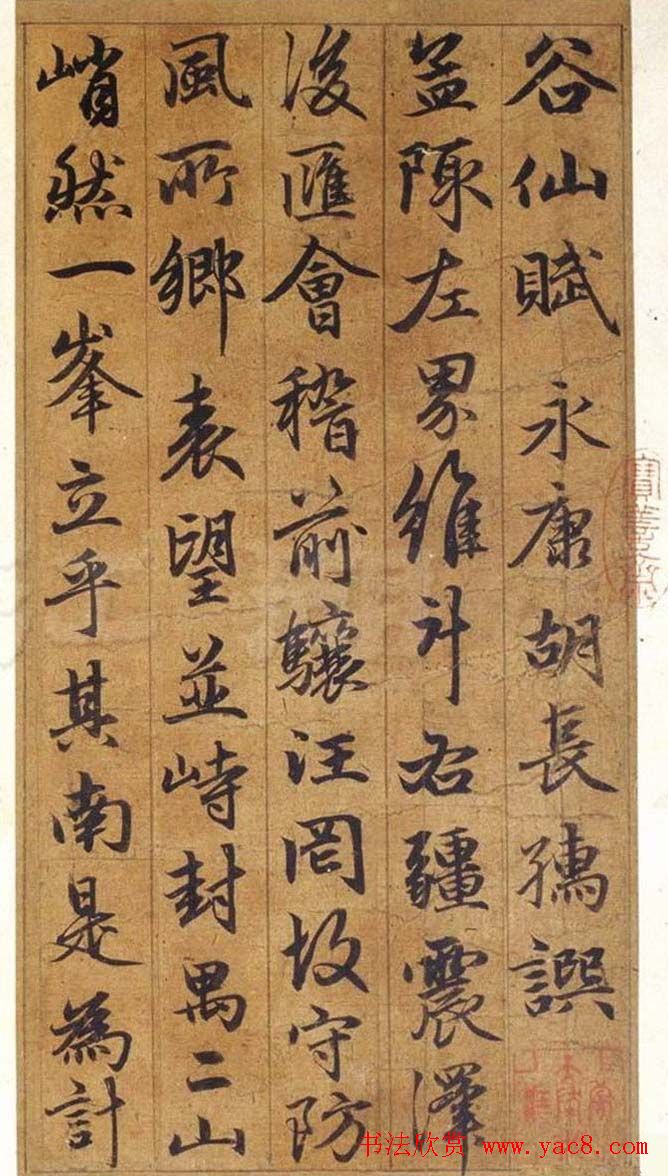 谷仙賦 永康胡長孺譔
孟陬左界維斗右疆震澤
後匯會稽前驤汪罔故守防
風所鄉表望並峙封禺二山
峭然一峯立乎其南是為計
书法欣赏 www.yac8.com